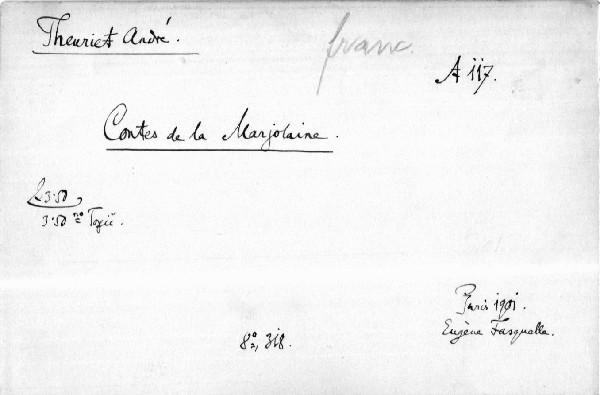 Theuriet André.
franc.
A 117.
Contes de la Marjolaine.
3·50
3·50 no
Paris 1901.
Eugène Fasquelle.
8o, 318.